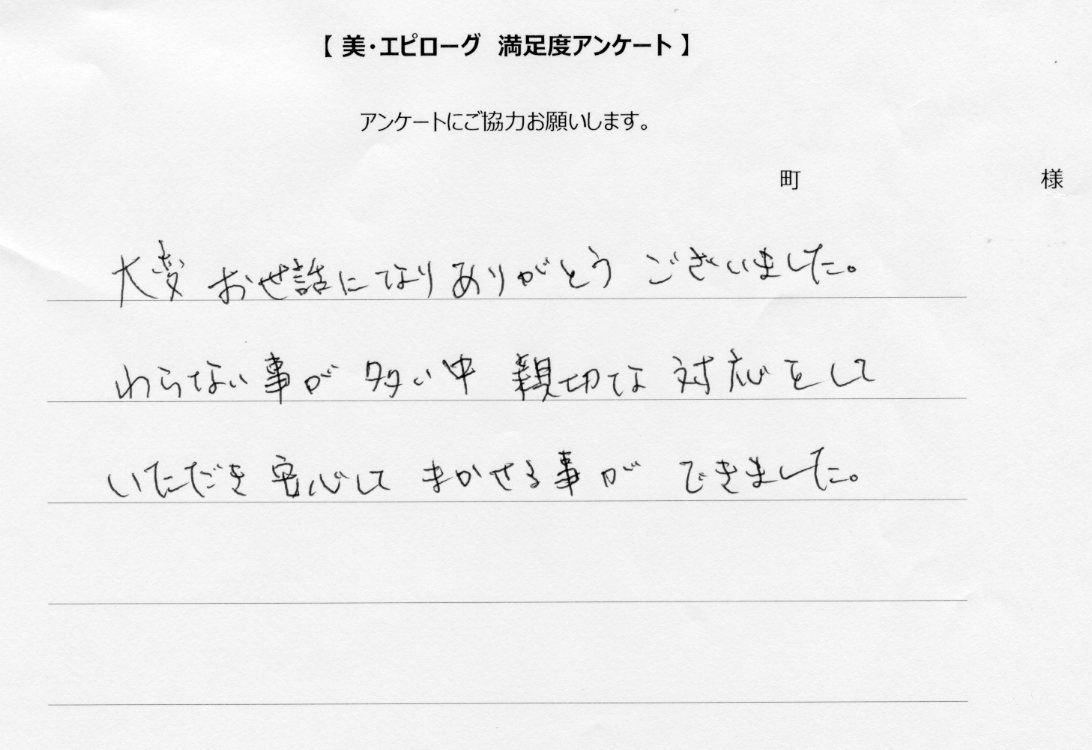 【 美・エピローグ 満足度アンケート 】
アンケートにご協力お願いします。
町 様
大変 お世話になり ありがとう ございました。
わらない事が 多い中 親切な 対応をして
いただき 安心して まかせる事が できました。